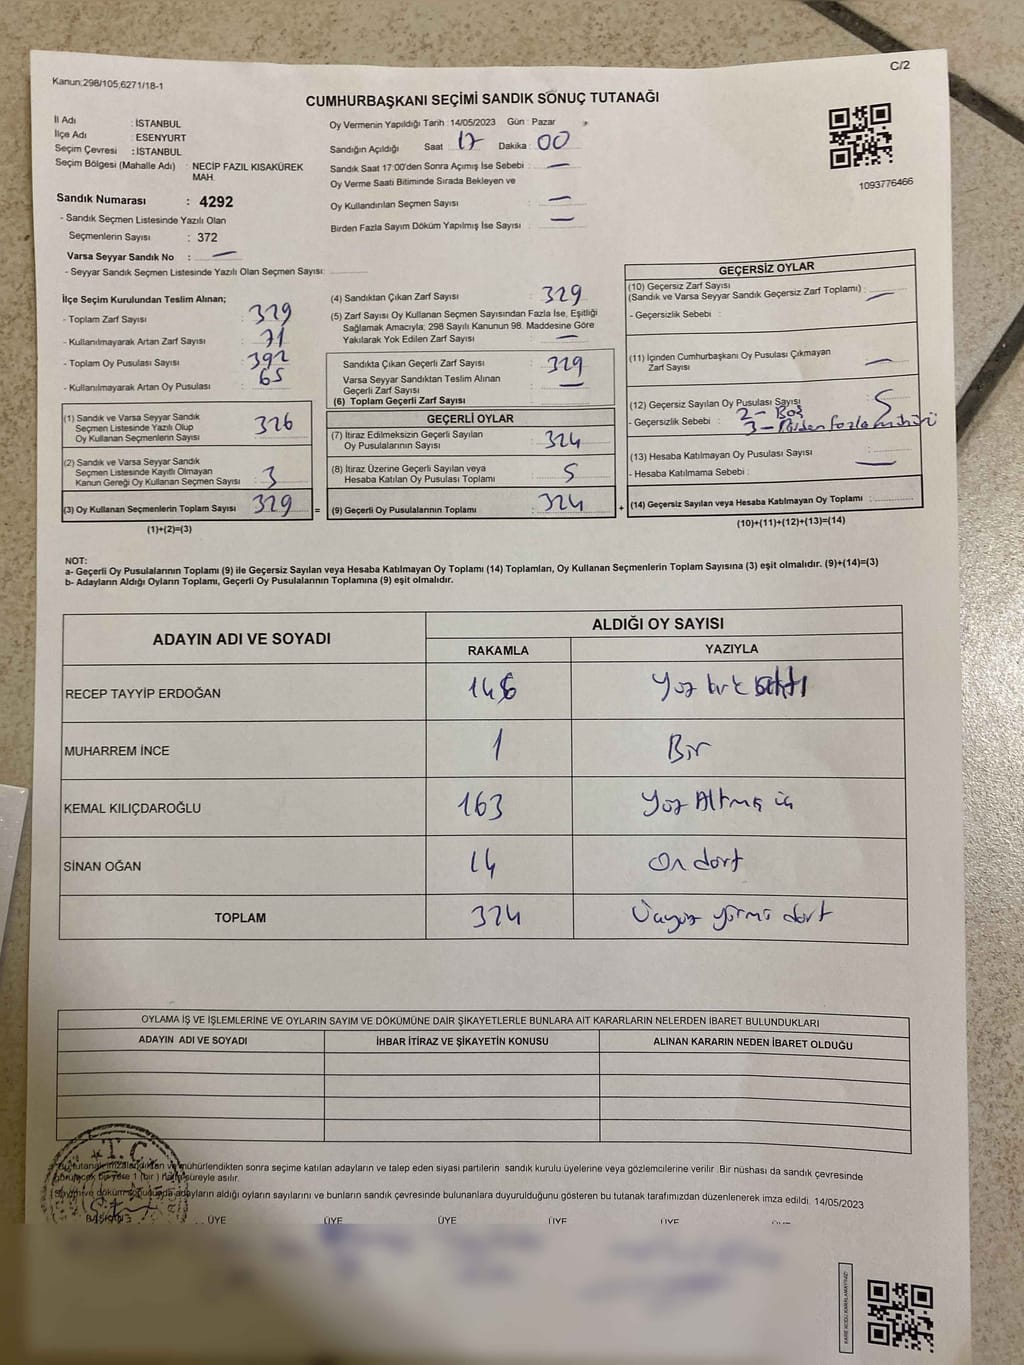 C/2
Kanun;298/105,6271/18-1
CUMHURBAŞKANI SEÇİMİ SANDIK SONUÇ TUTANAĞI
İl Adı : İSTANBUL
İlçe Adı : ESENYURT
Seçim Çevresi : İSTANBUL
Seçim Bölgesi (Mahalle Adı) : NECİP FAZIL KISAKÜREK
MAH.
Sandık Numarası : 4292
- Sandık Seçmen Listesinde Yazılı Olan
Seçmenlerin Sayısı : 372
Varsa Seyyar Sandık No : —
- Seyyar Sandık Seçmen Listesinde Yazılı Olan Seçmen Sayısı:
Oy Vermenin Yapıldığı Tarih : 14/05/2023 Gün : Pazar
Sandığın Açıldığı Saat 17 Dakika : 00
Sandık Saat 17:00'den Sonra Açımış İse Sebebi : —
Oy Verme Saati Bitiminde Sırada Bekleyen ve
Oy Kullandırılan Seçmen Sayısı : —
Birden Fazla Sayım Döküm Yapılmış İse Sayısı : —
1093776466
İlçe Seçim Kurulundan Teslim Alınan;
- Toplam Zarf Sayısı : 329
- Kullanılmayarak Artan Zarf Sayısı : 71
- Toplam Oy Pusulası Sayısı : 392
- Kullanılmayarak Artan Oy Pusulası : 65
(1) Sandık ve Varsa Seyyar Sandık
Seçmen Listesinde Yazılı Olup
Oy Kullanan Seçmenlerin Sayısı : 326
(2) Sandık ve Varsa Seyyar Sandık
Seçmen Listesinde Kayıtlı Olmayan
Kanun Gereği Oy Kullanan Seçmen Sayısı : 3
(3) Oy Kullanan Seçmenlerin Toplam Sayısı : 329 =
(1)+(2)=(3)
(4) Sandıktan Çıkan Zarf Sayısı : 329
(5) Zarf Sayısı Oy Kullanan Seçmen Sayısından Fazla İse, Eşitliği
Sağlamak Amacıyla, 298 Sayılı Kanunun 98. Maddesine Göre
Yakılarak Yok Edilen Zarf Sayısı : —
Sandıkta Çıkan Geçerli Zarf Sayısı : 329
Varsa Seyyar Sandıktan Teslim Alınan
Geçerli Zarf Sayısı : —
(6) Toplam Geçerli Zarf Sayısı
GEÇERLİ OYLAR
(7) İtiraz Edilmeksizin Geçerli Sayılan
Oy Pusulalarının Sayısı : 324
(8) İtiraz Üzerine Geçerli Sayılan veya
Hesaba Katılan Oy Pusulası Toplamı : 5
(9) Geçerli Oy Pusulalarının Toplamı : 324 +
GEÇERSİZ OYLAR
(10) Geçersiz Zarf Sayısı
(Sandık ve Varsa Seyyar Sandık Geçersiz Zarf Toplamı) : —
- Geçersizlik Sebebi :
(11) İçinden Cumhurbaşkanı Oy Pusulası Çıkmayan
Zarf Sayısı —
(12) Geçersiz Sayılan Oy Pusulası Sayısı : 5
- Geçersizlik Sebebi : 2 - Boş
3 - Birden fazla mühürü
(13) Hesaba Katılmayan Oy Pusulası Sayısı : —
- Hesaba Katılmama Sebebi :
(14) Geçersiz Sayılan veya Hesaba Katılmayan Oy Toplamı :
(10)+(11)+(12)+(13)=(14)
NOT:
a- Geçerli Oy Pusulalarının Toplamı (9) ile Geçersiz Sayılan veya Hesaba Katılmayan Oy Toplamı (14) Toplamları, Oy Kullanan Seçmenlerin Toplam Sayısına (3) eşit olmalıdır. (9)+(14)=(3)
b- Adayların Aldığı Oyların Toplamı, Geçerli Oy Pusulalarının Toplamına (9) eşit olmalıdır.
ADAYIN ADI VE SOYADI ALDIĞI OY SAYISI
RAKAMLA YAZIYLA
RECEP TAYYİP ERDOĞAN 146 Yüz kırk altı
MUHARREM İNCE 1 Bir
KEMAL KILIÇDAROĞLU 163 Yüz Altmış üç
SİNAN OĞAN 14 On dört
TOPLAM 324 Üçyüz yirmi dört
OYLAMA İŞ VE İŞLEMLERİNE VE OYLARIN SAYIM VE DÖKÜMÜNE DAİR ŞİKAYETLERLE BUNLARA AİT KARARLARIN NELERDEN İBARET BULUNDUKLARI
ADAYIN ADI VE SOYADI İHBAR İTİRAZ VE ŞİKAYETİN KONUSU ALINAN KARARIN NEDEN İBARET OLDUĞU
T.C.
Bu tutanak imzalandıktan ve mühürlendikten sonra seçime katılan adayların ve talep eden siyasi partilerin sandık kurulu üyelerine veya gözlemcilerine verilir. Bir nüshası da sandık çevresinde
görülecek bir yere 1 (bir) hafta süreyle asılır.
Sayım ve döküm sonucunda adayların aldığı oyların sayılarını ve bunların sandık çevresinde bulunanlara duyurulduğunu gösteren bu tutanak tarafımızdan düzenlenerek imza edildi. 14/05/2023
BAŞKAN ÜYE ÜYE ÜYE ÜYE ÜYE